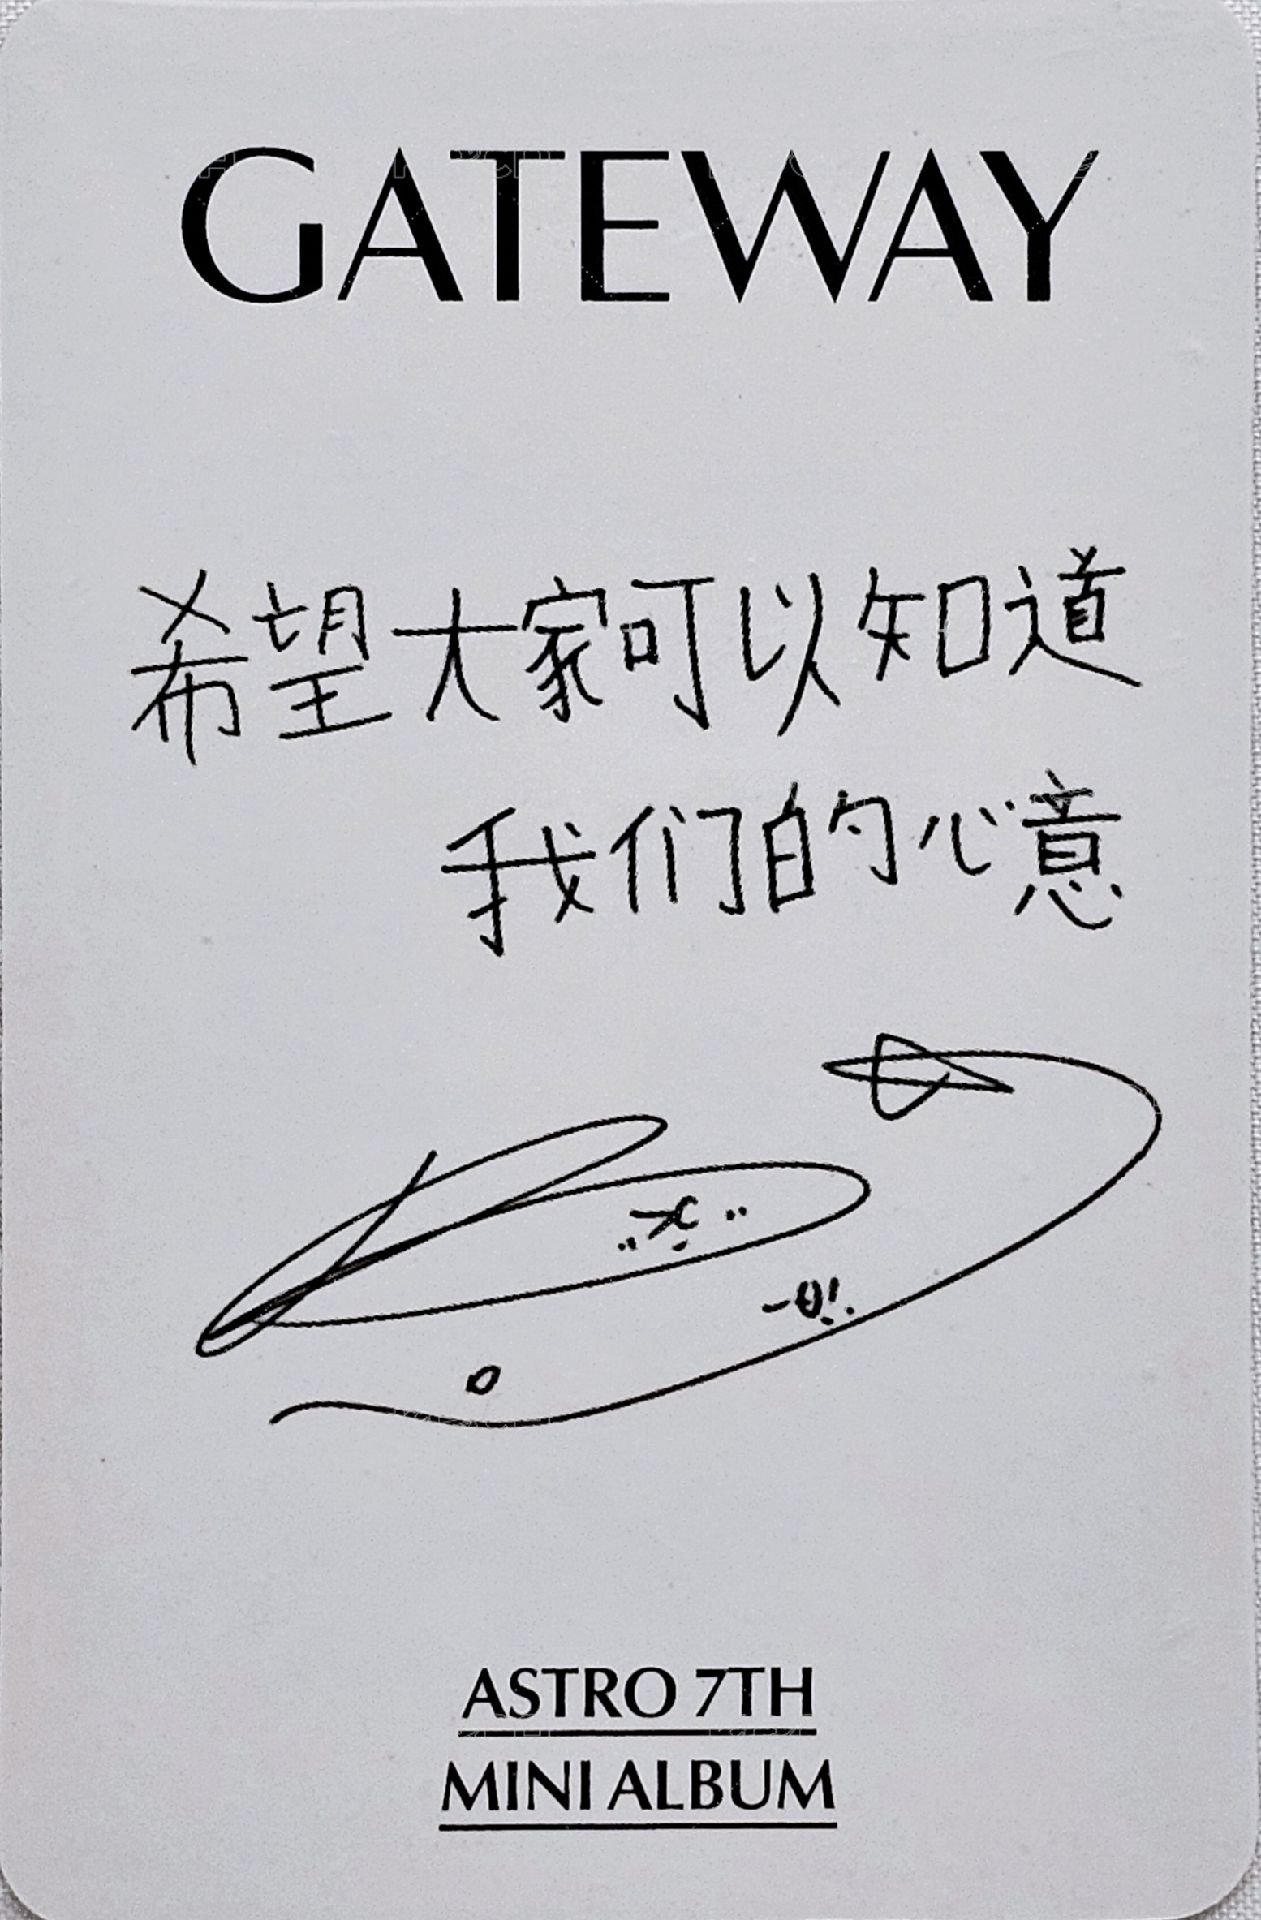 GATEWAY
希望大家可以知道
我们的心意
ASTRO 7TH
MINI ALBUM